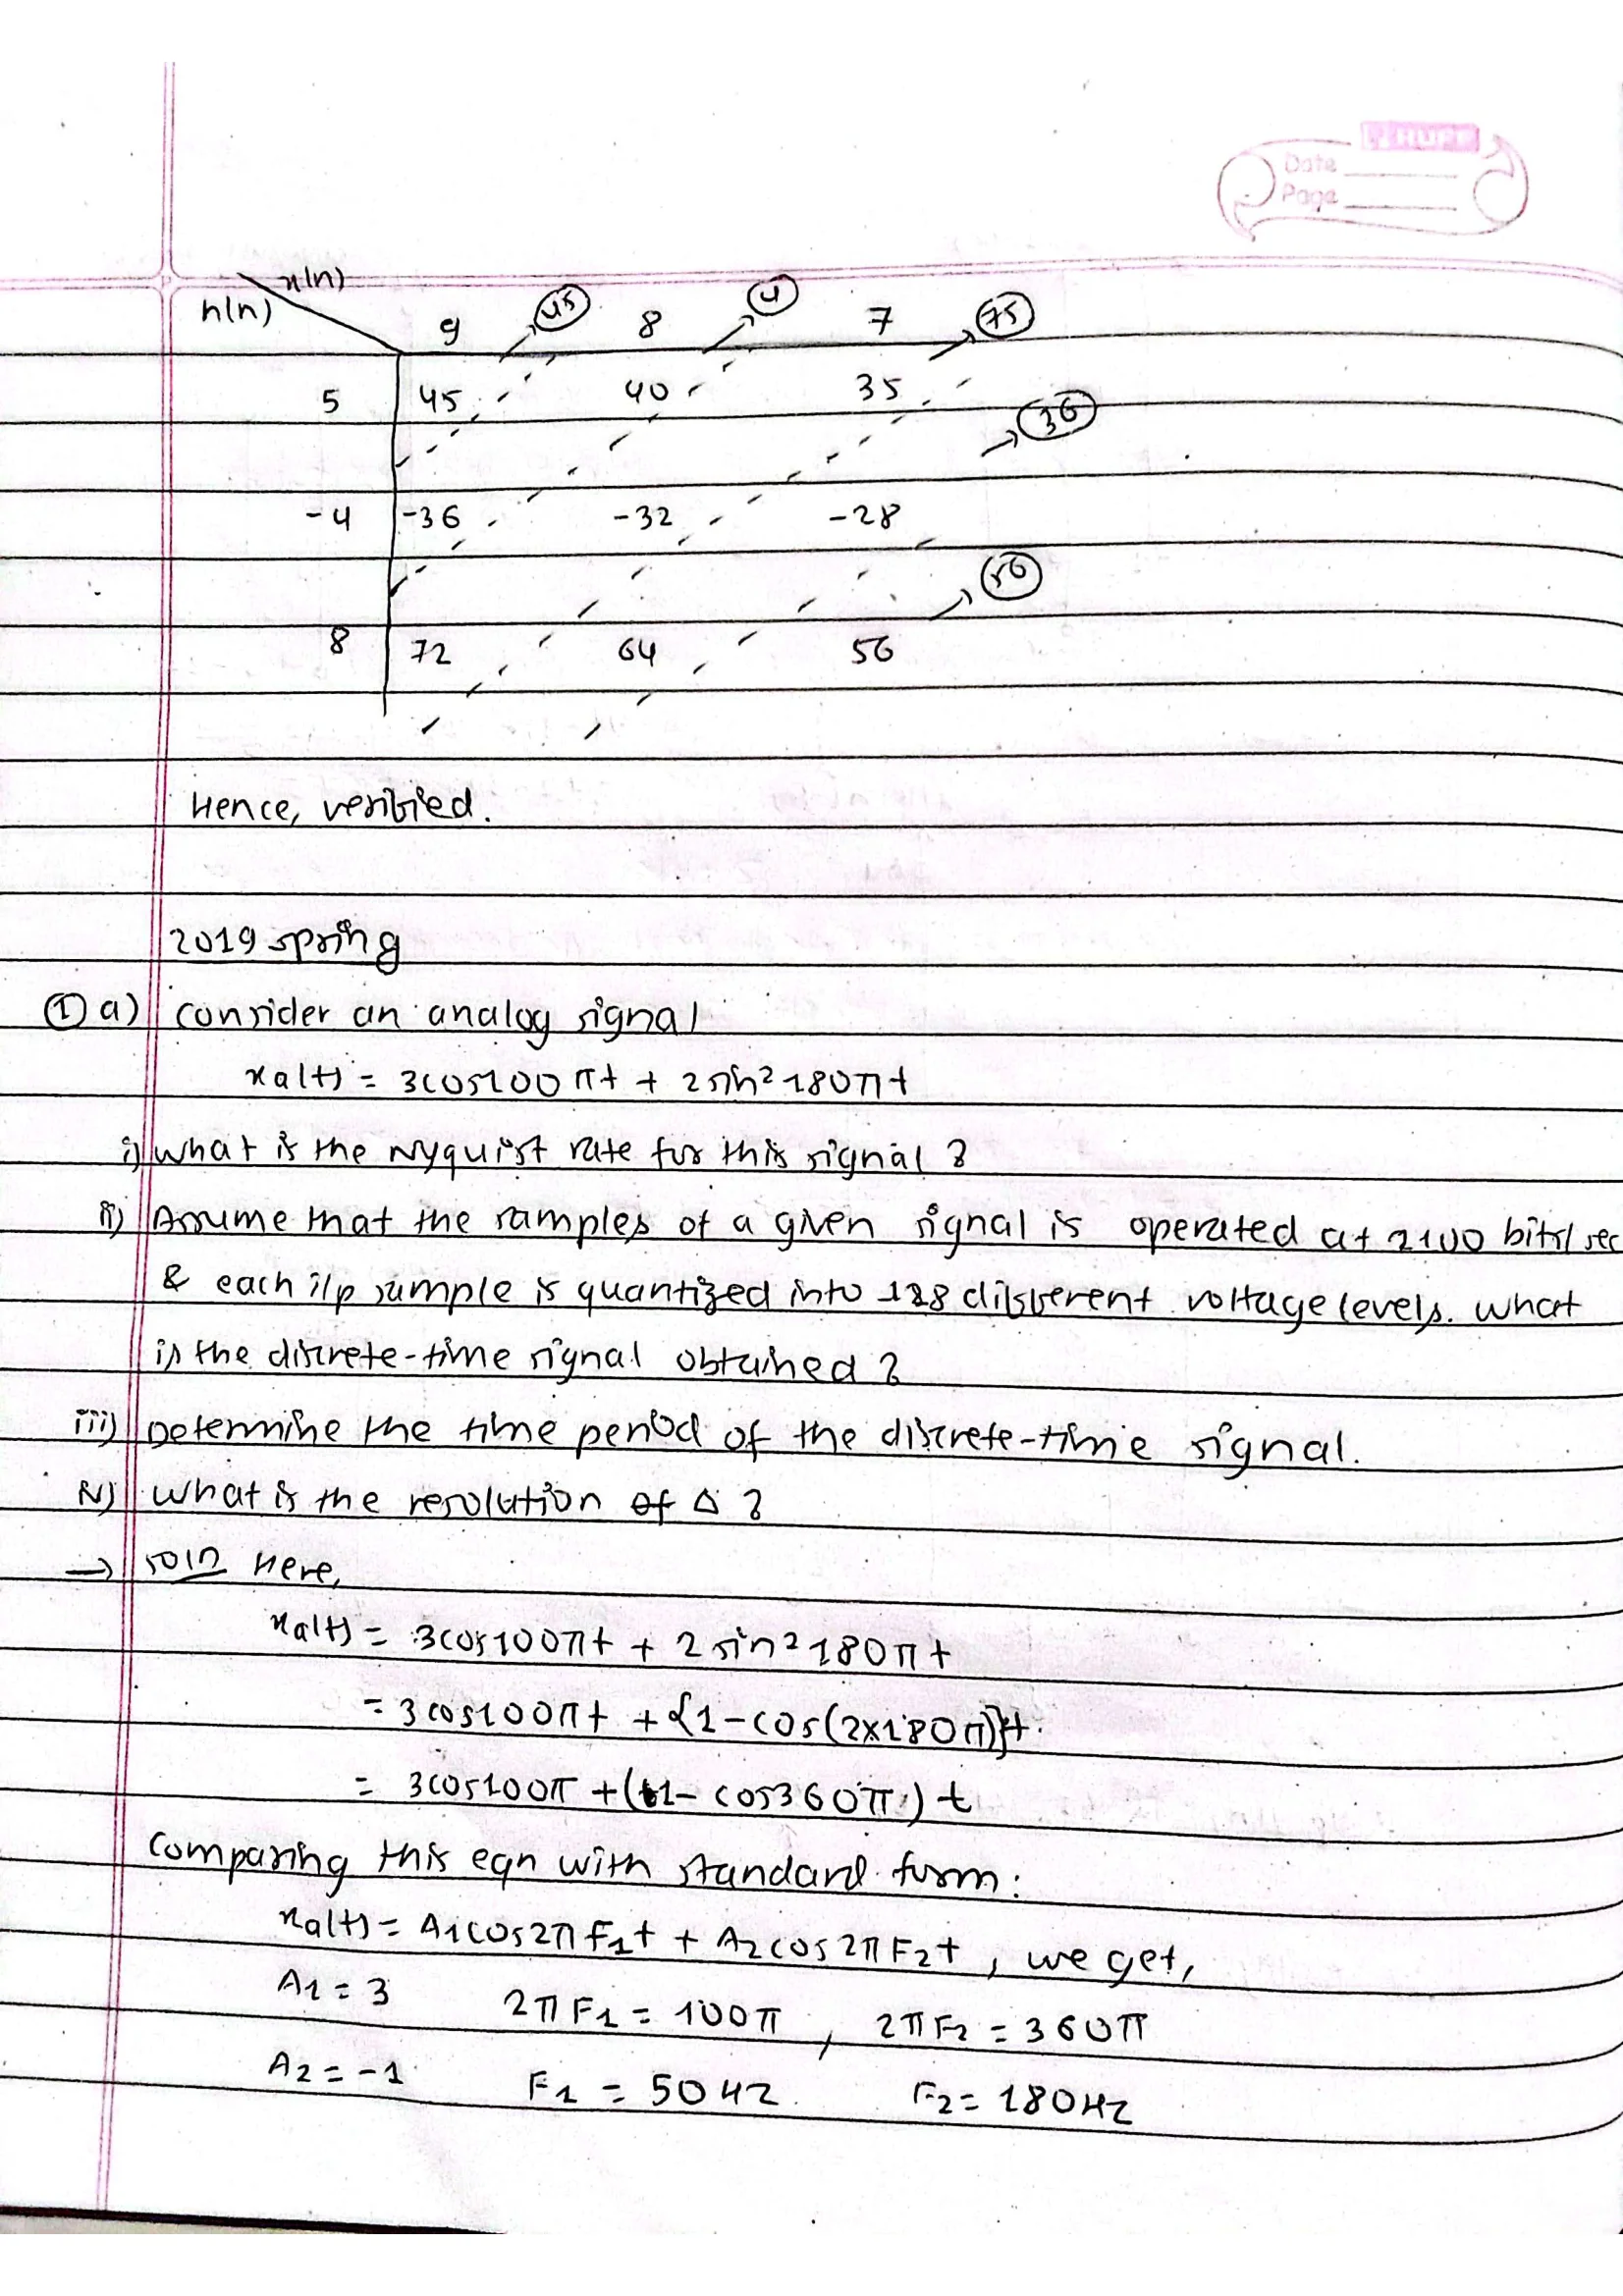 Date
Page
x(n)
h(n)
9 45 8 4 7 75
5 45 40 35
36
-4 -36 -32 -28
56
8 72 64 56
Hence, verified.
2019 spring
① a) Consider an analog signal
xa(t) = 3cos100πt + 2sin²180πt
i) what is the Nyquist rate for this signal?
ii) Assume that the samples of a given signal is operated at 2100 bits/sec
& each i/p sample is quantized into 128 different voltage levels. What
is the discrete-time signal obtained?
iii) Determine the time period of the discrete-time signal.
iv) What is the resolution of Δ?
→ Soln Here,
xa(t) = 3cos100πt + 2sin²180πt
= 3cos100πt + {1-cos(2x180π)}t
= 3cos100π + (1- cos360π) t
Comparing this eqn with standard form:
xa(t) = A1cos2πF1t + A2cos2πF2t, we get,
A1 = 3 2πF1 = 100π, 2πF2 = 360π
A2 = -1 F1 = 50HZ F2 = 180HZ